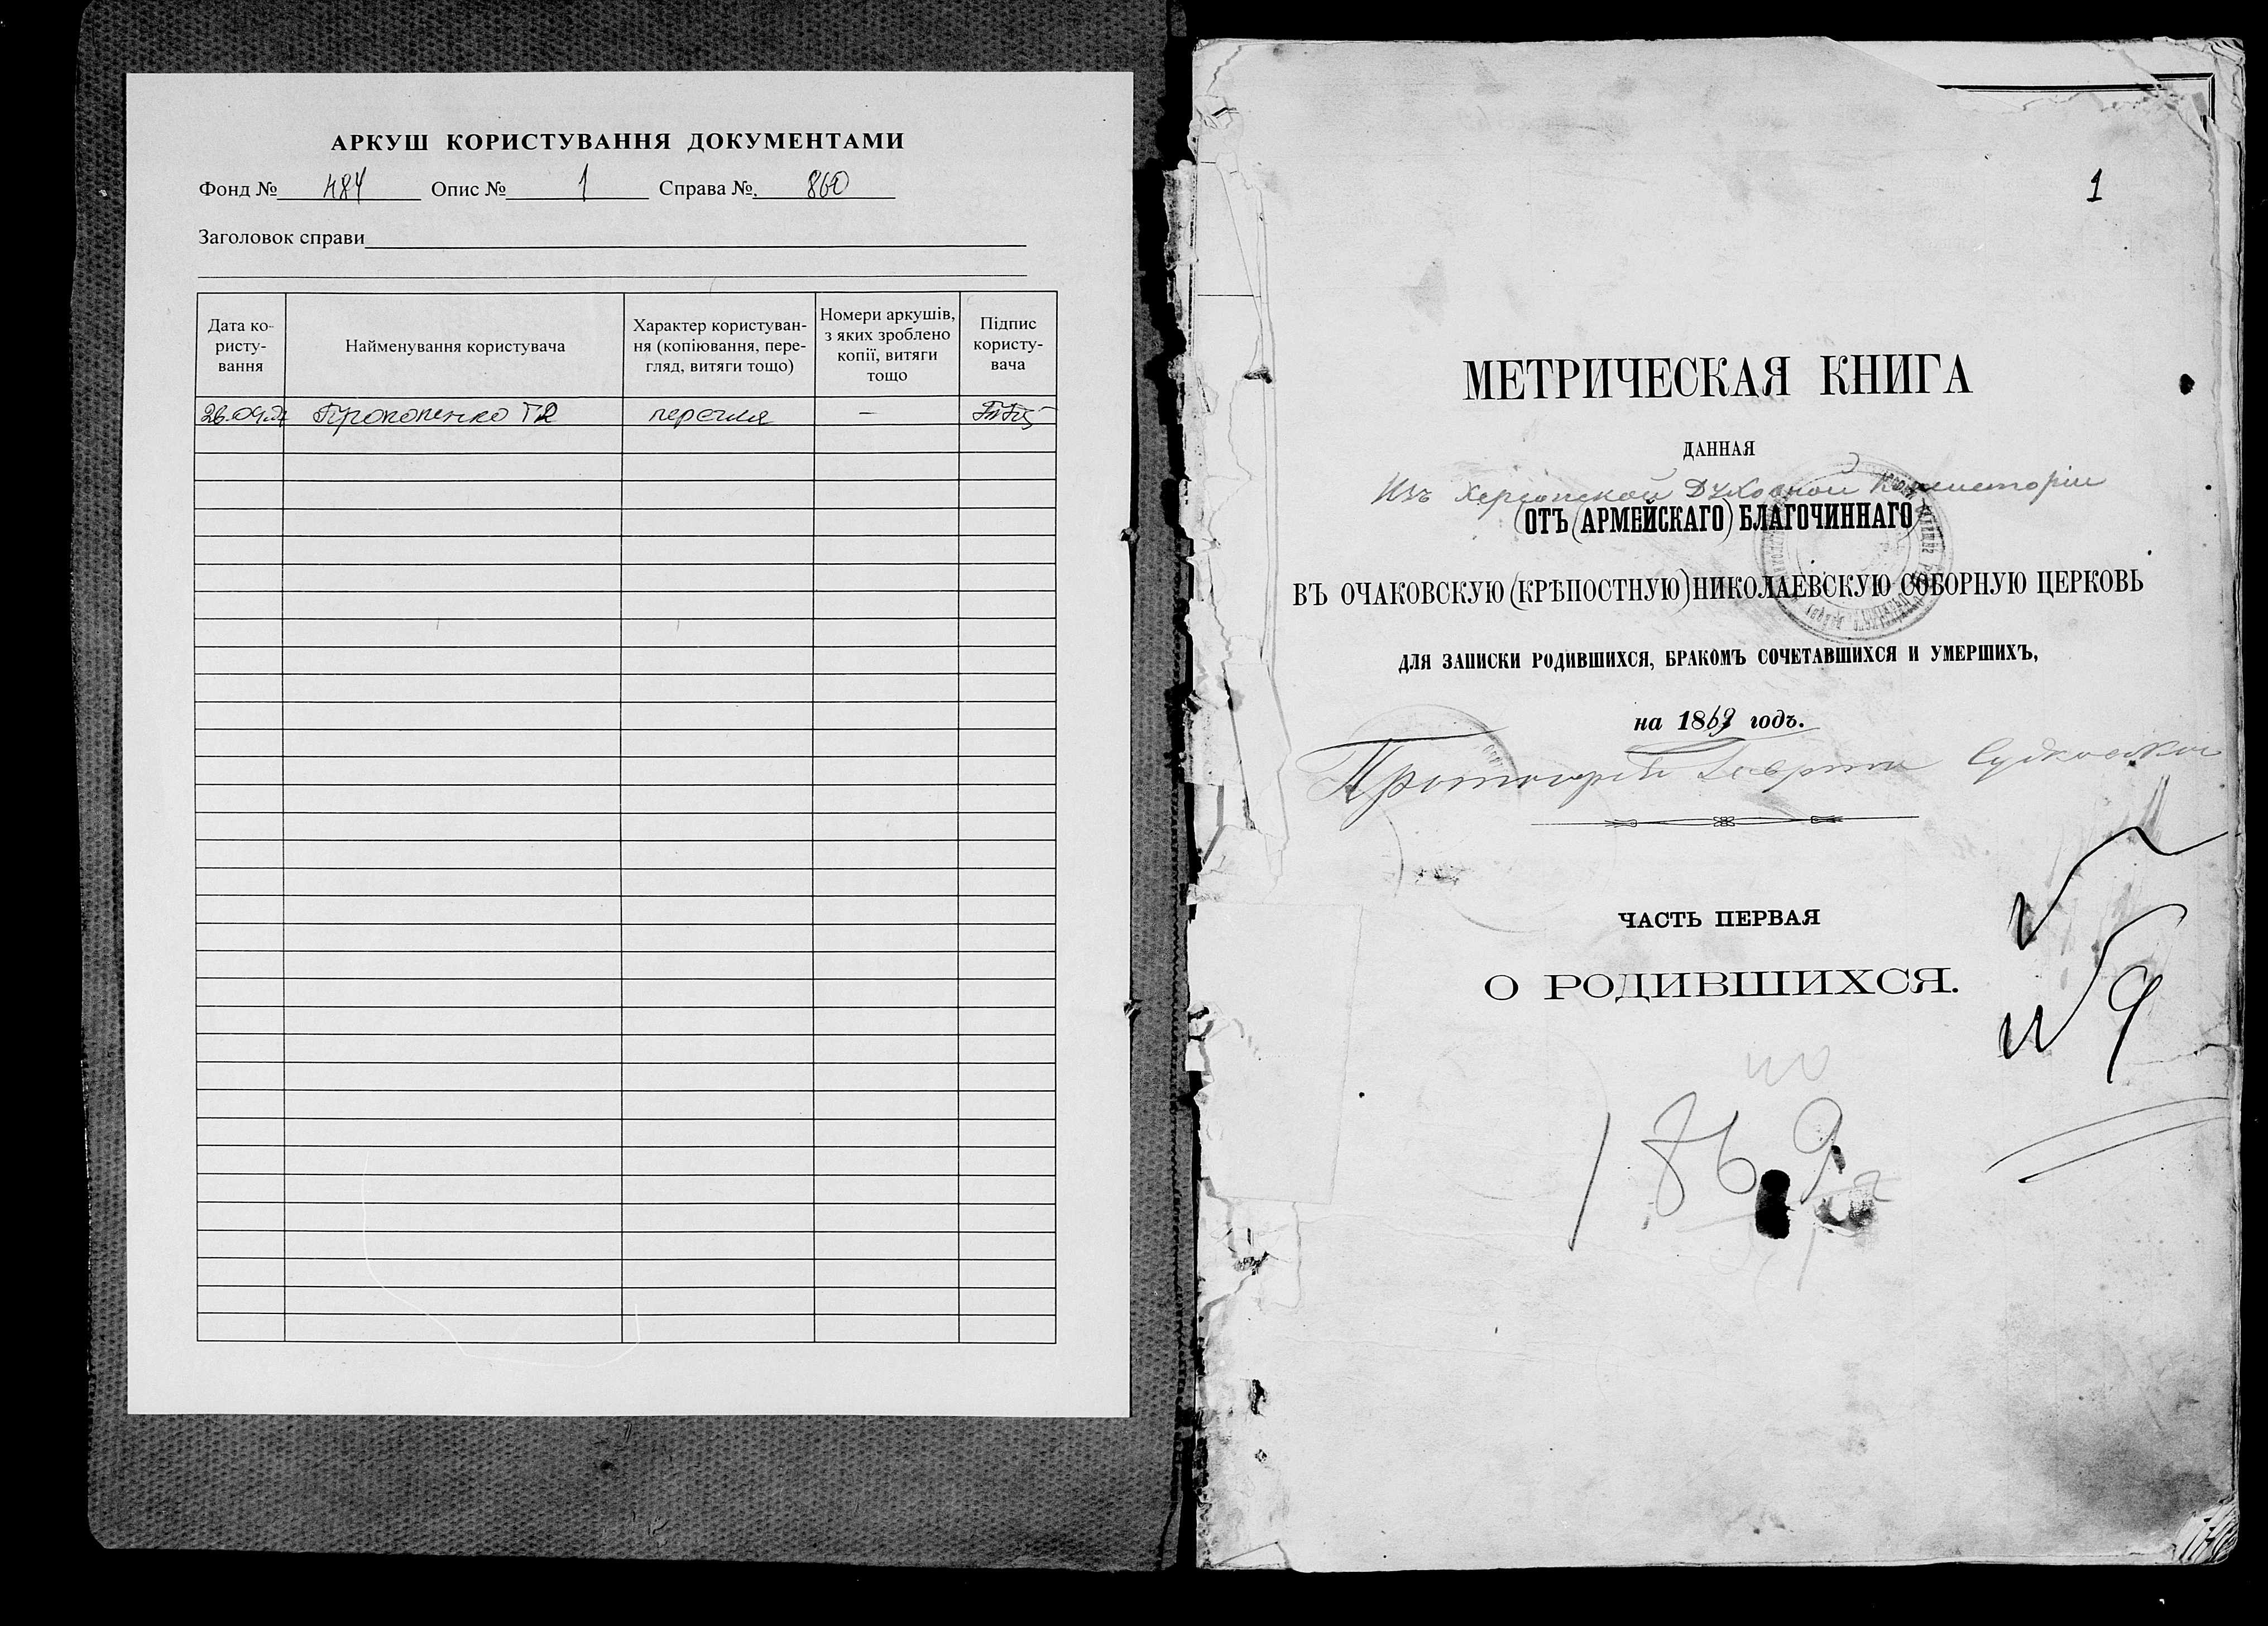 АРКУШ КОРИСТУВАННЯ ДОКУМЕНТАМИ
Фонд № 484 Опис № 1 Справа № 860
Заголовок справи
Дата ко-
ристу-
вання
Найменування користувача
Характер користуван-
ня (копіювання, пере-
гляд, витяги тощо)
Номери аркушів,
з яких зроблено
копії, витяги
тощо
Підпис
користу-
вача
Прокопенко —
1
МЕТРИЧЕСКАЯ КНИГА
ДАННАЯ
Изъ Херсонской Духовной Консисторіи
(ОТЪ (АРМЕЙСКАГО) БЛАГОЧИННАГО)
ВЪ ОЧАКОВСКУЮ (КРѢПОСТНУЮ) НИКОЛАЕВСКУЮ СОБОРНУЮ ЦЕРКОВЬ
ДЛЯ ЗАПИСКИ РОДИВШИХСЯ, БРАКОМЪ СОЧЕТАВШИХСЯ И УМЕРШИХЪ,
на 1869 годъ.
Протоіерей Гавріилъ Судковскій
ЧАСТЬ ПЕРВАЯ
О РОДИВШИХСЯ.
1869